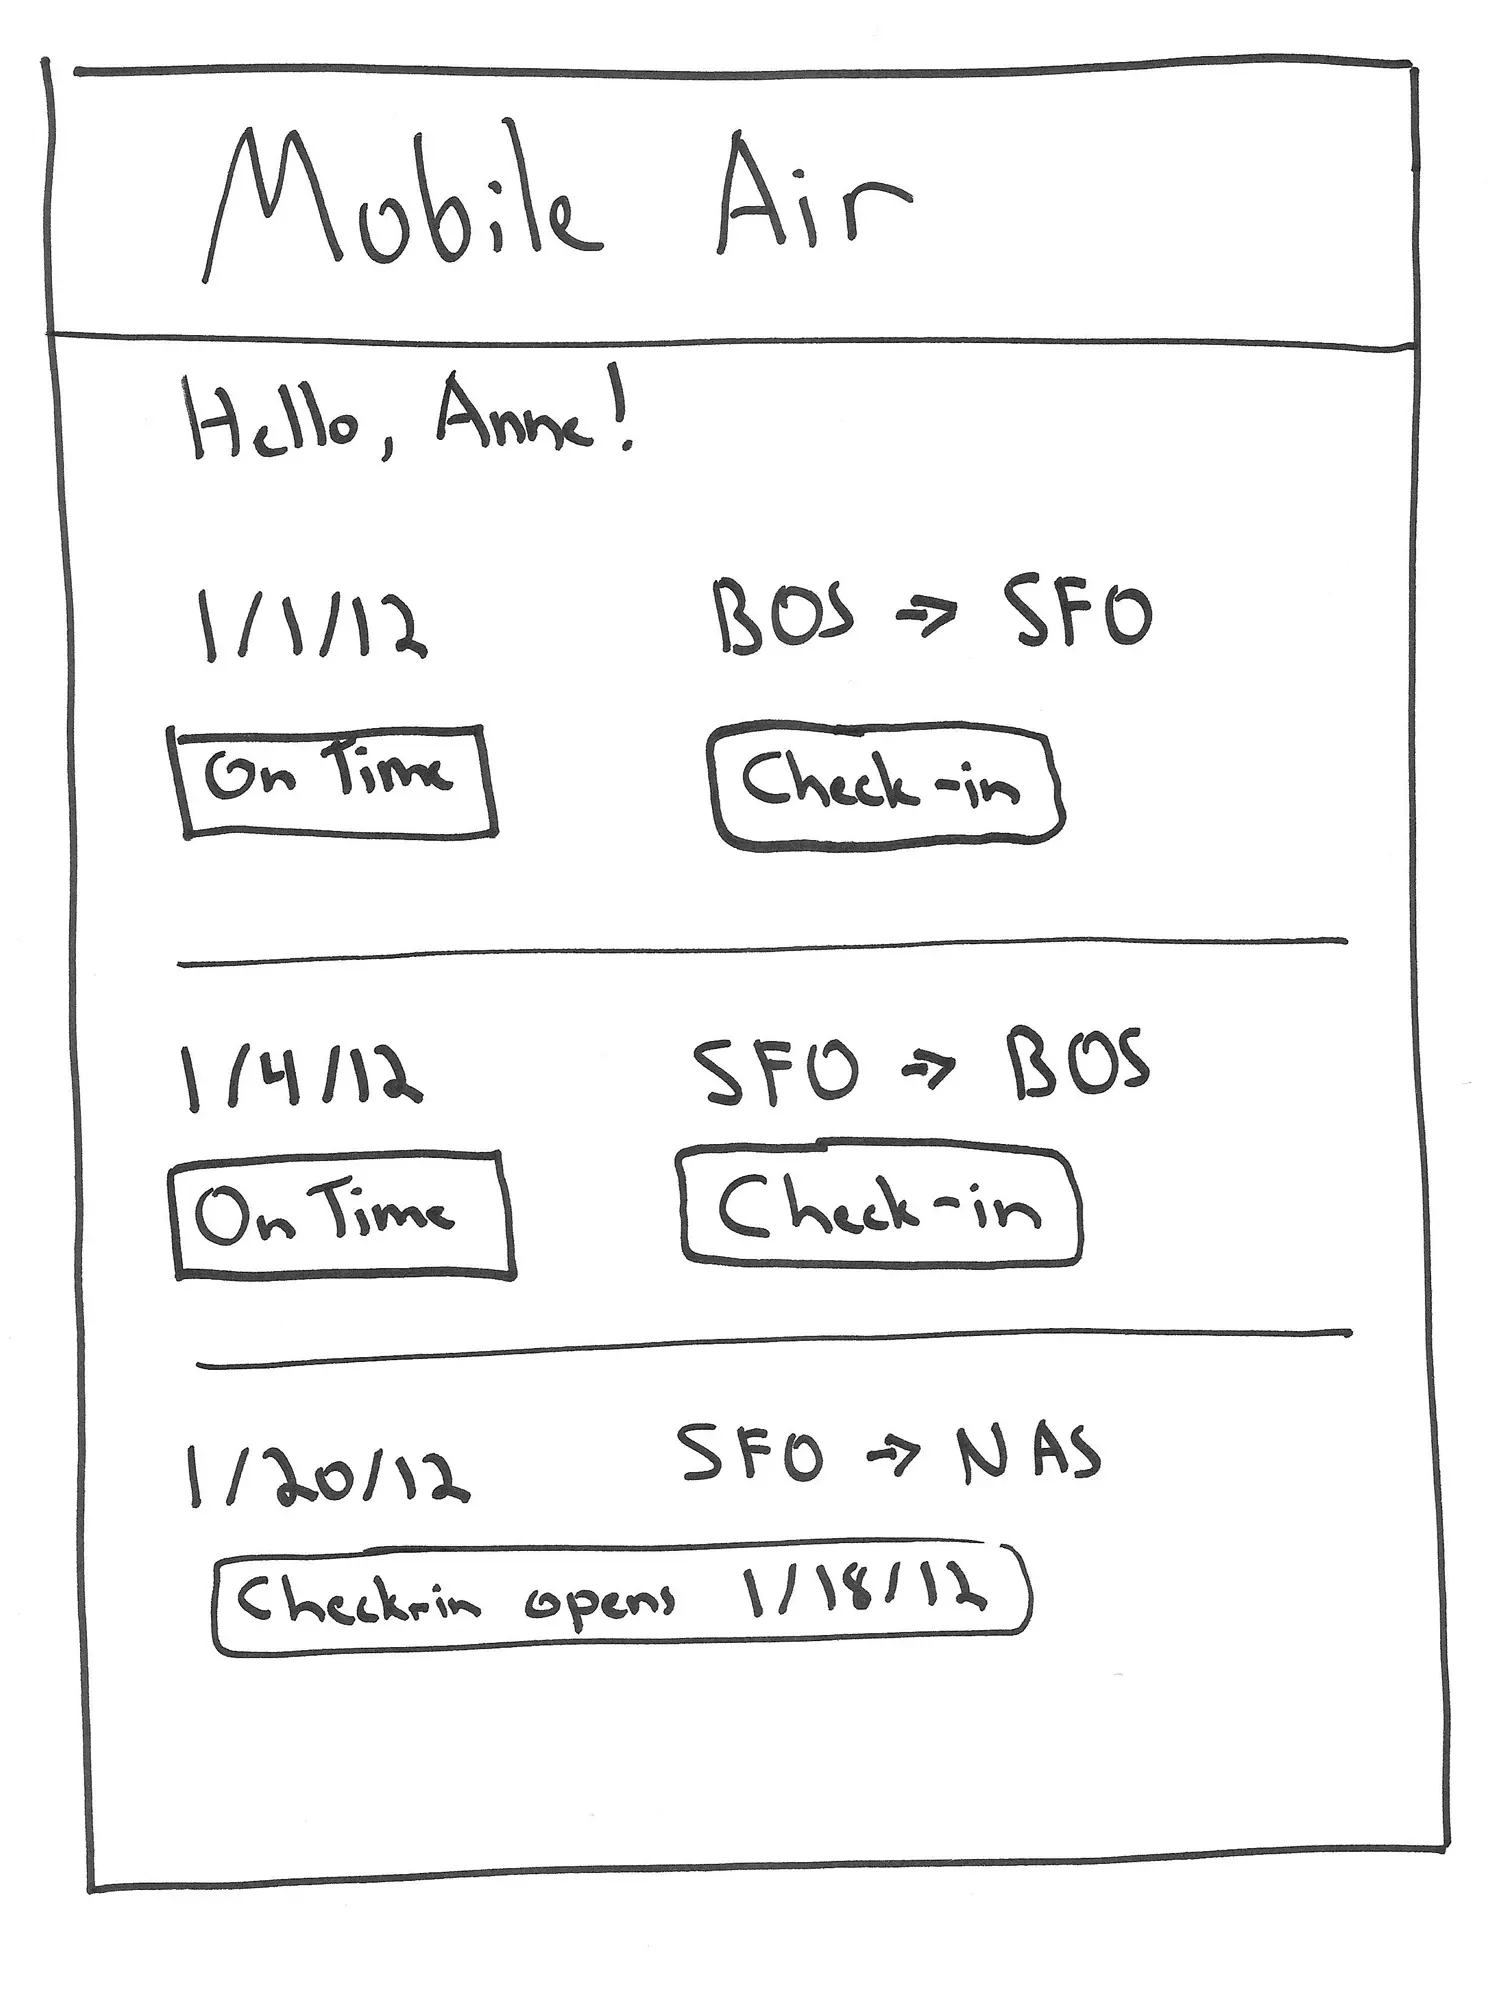 Mobile Air
Hello, Anne!
1/1/12 BOS → SFO
On Time Check-in
1/4/12 SFO → BOS
On Time Check-in
1/20/12 SFO → NAS
Check-in opens 1/18/12